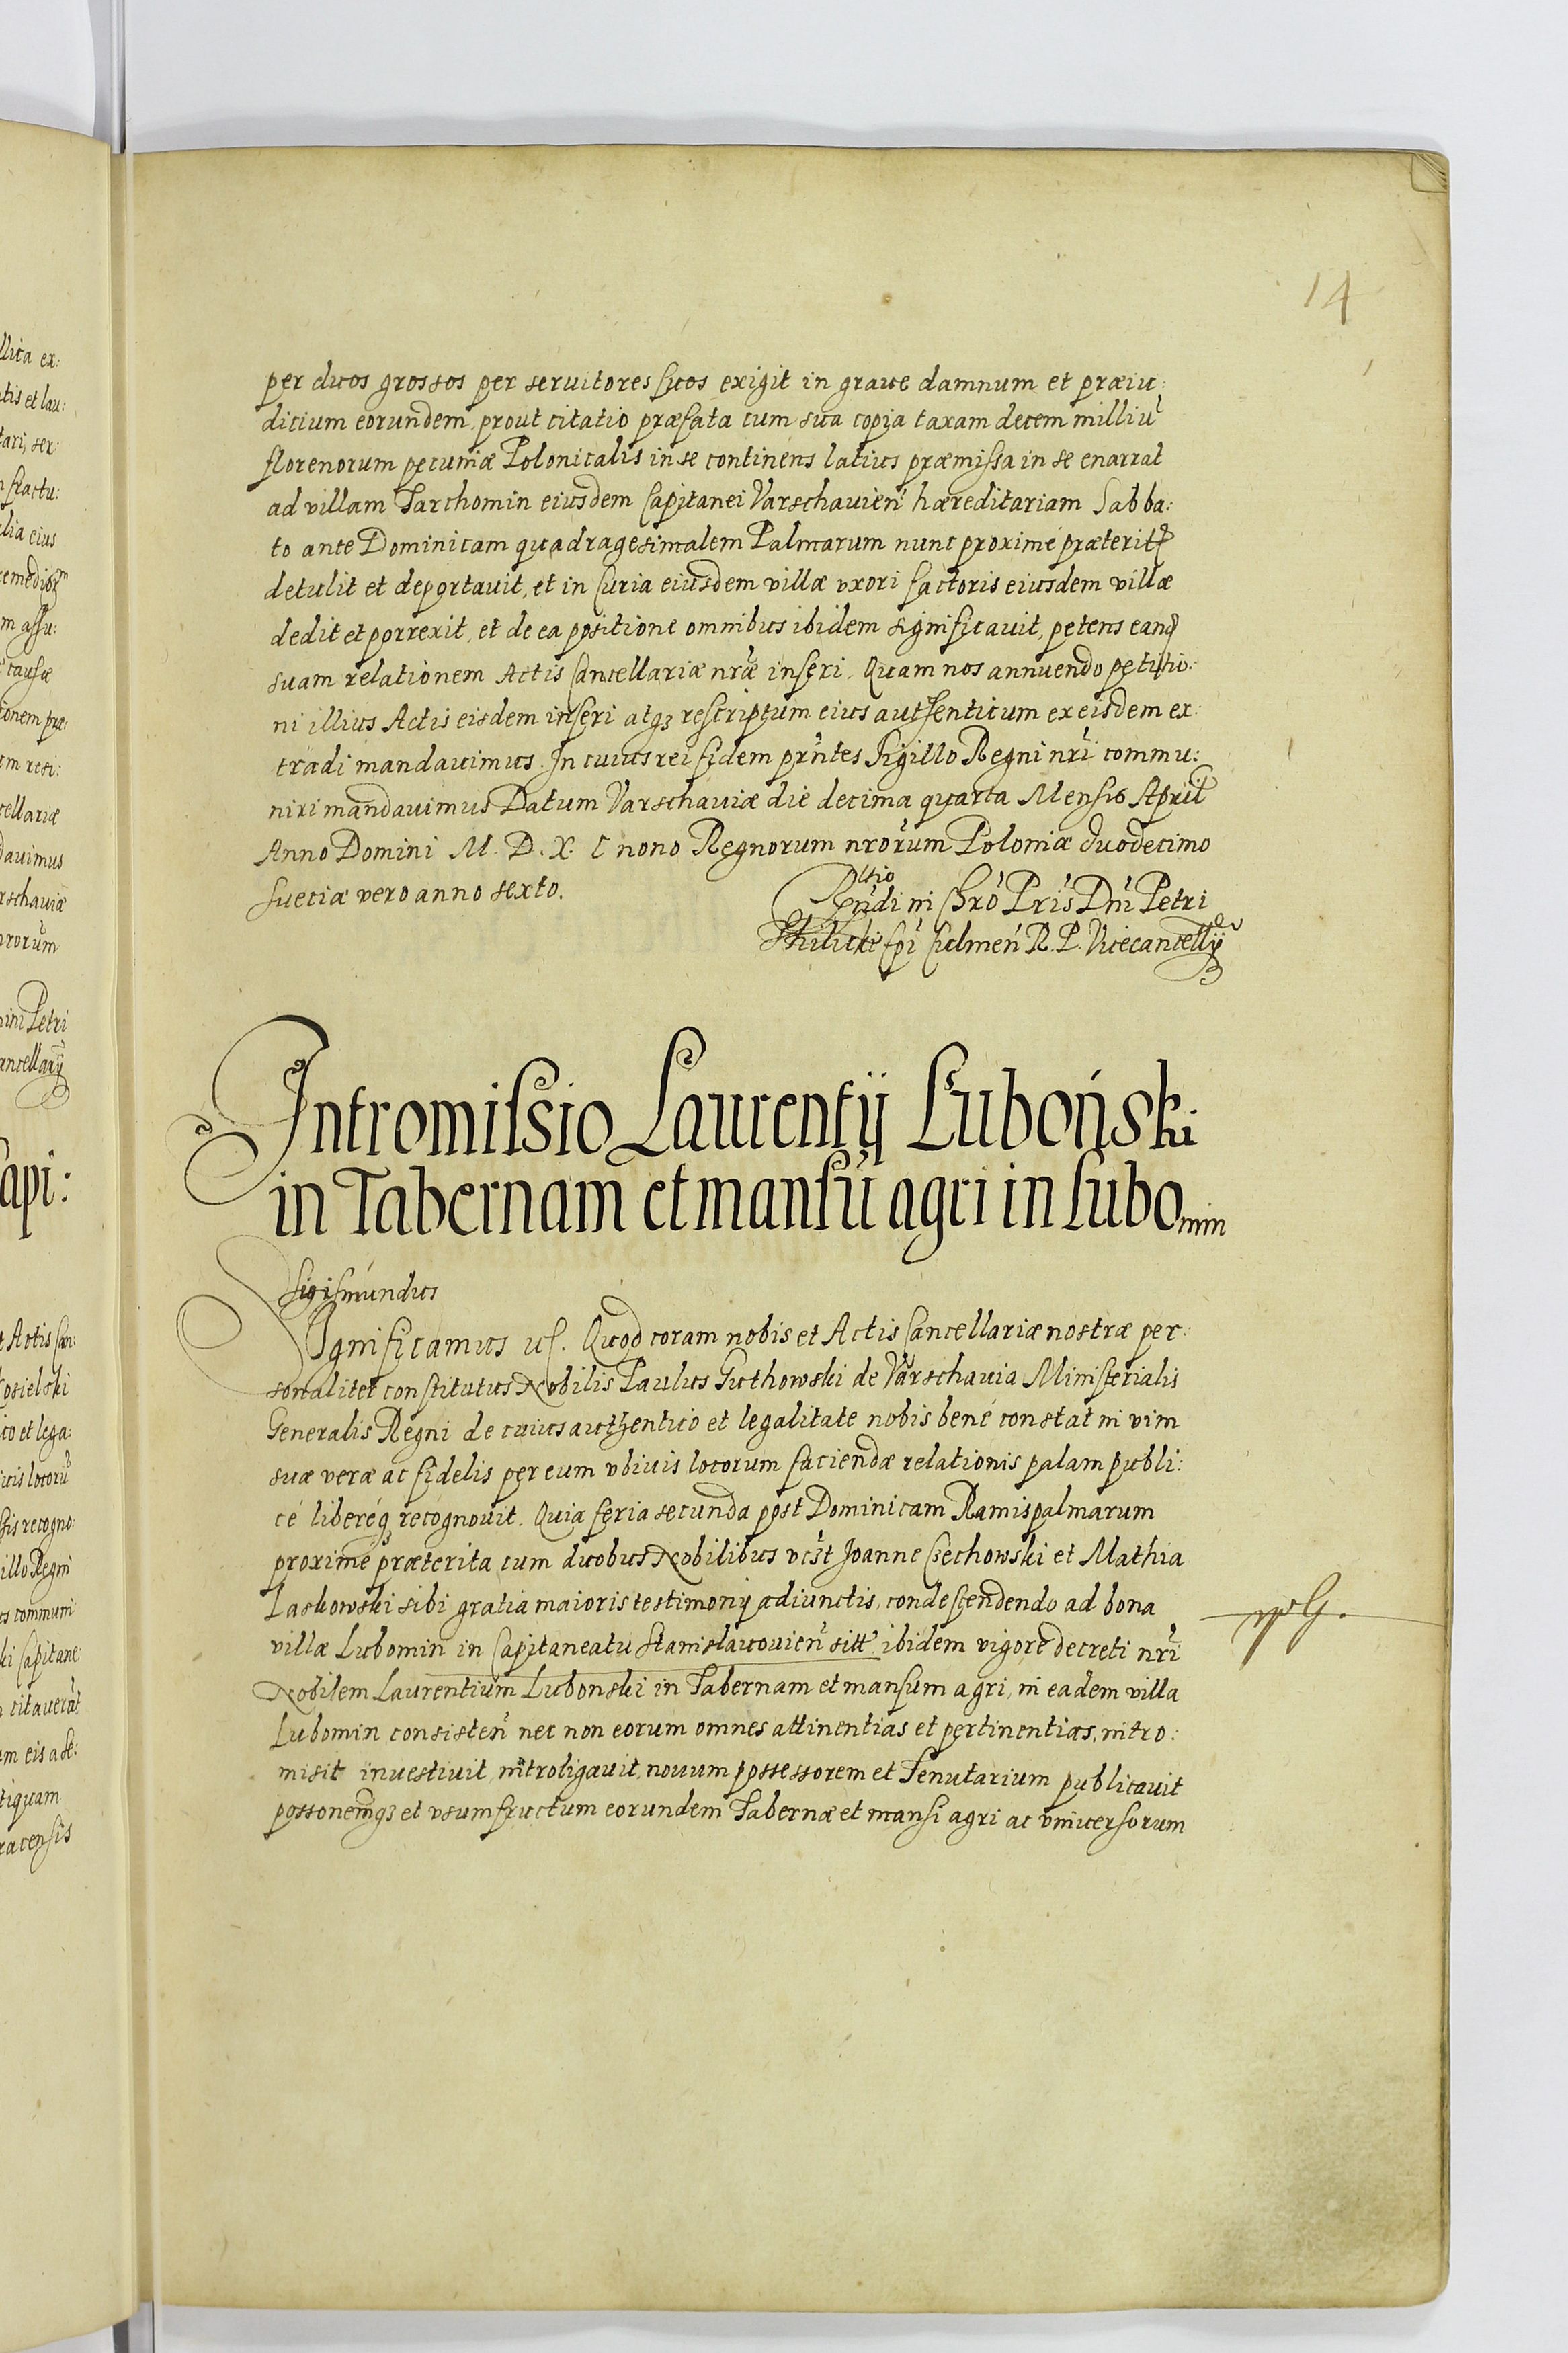 14
per duos grossos per seruitores suos exigit in graue damnum et præiu:
ditium eorundem, prout citatio præfata cum sua copia taxam decem milliū
florenorum pecuniæ Polonicalis in se continens latius præmissa in se enarrat
ad villam Tarchomin eiusdem Capitanei Varschavien̄ hæreditariam Sabba:
to ante Dominicam quadragesimalem Palmarum nunc proximé præterit
detulit et deportauit, et in Curia eiusdem villæ vxori factoris eiusdem villæ
dedit et porrexit, et de ea positione omnibus ibidem significauit, petens eand
suam relationem Actis Cancellariæ nr̄æ inseri. Quam nos annuendo petitio:
ni illius Actis eisdem inseri atq3 rescriptum eius authenticum ex eisdem ex:
tradi mandauimus. In cuius rei fidem prn̄tes sigillo Regni nr̄i commu:
niri mandauimus Datum Varschauiæ die decima quarta Mensis April
Anno Domini M. D. X. C nono Regnorum nrōrum Poloniæ duodecimo
Sueciæ vero anno sexto.
Rltio
Rn̄di in Chr̄o Pr̄is Dn̄i Petri
Thilicki Ep̄i Culmen̄ R. P. Vicecancellÿ
Intromissio Laurentij Luboński
in Tabernam et mansū agri in Lubomin
Sigismundus
Significamus uſ. Quod coram nobis et Actis Cancellariæ nostræ per:
sonaliter constitutus Nobilis Paulus Guthowski de Varschauia Ministerialis
Generalis Regni de cuius authentico et legalitate nobis bené constat in vim
suæ veræ ac fidelis per eum vbiuis locorum faciendæ relationis palam publi:
cé liberéq3 recognouit. Quia feria secunda post Dominicam Ramispalmarum
proximé præterita cum duobus Nobilibus vc̄zt Joanne Czechowski et Mathia
Laskowski sibi gratia maioris testimonij adiunctis, condescendendo ad bona
villæ Lubomin in Capitaneatu Stanislauouien̄ sitt ibidem vigore decreti nr̄i
Nobilem Laurentium Lubonski in Tabernam et mansum agri, in eadem villa
Lubomin consisten̄ nec non eorum omnes attinentias et pertinentias, intro:
misit inuestiuit, introligauit, nouum possessorem et Tenutarium publicauit
possonemq3 et vsumfructum eorundem Tabernæ et mansi agri ac vniuersorum